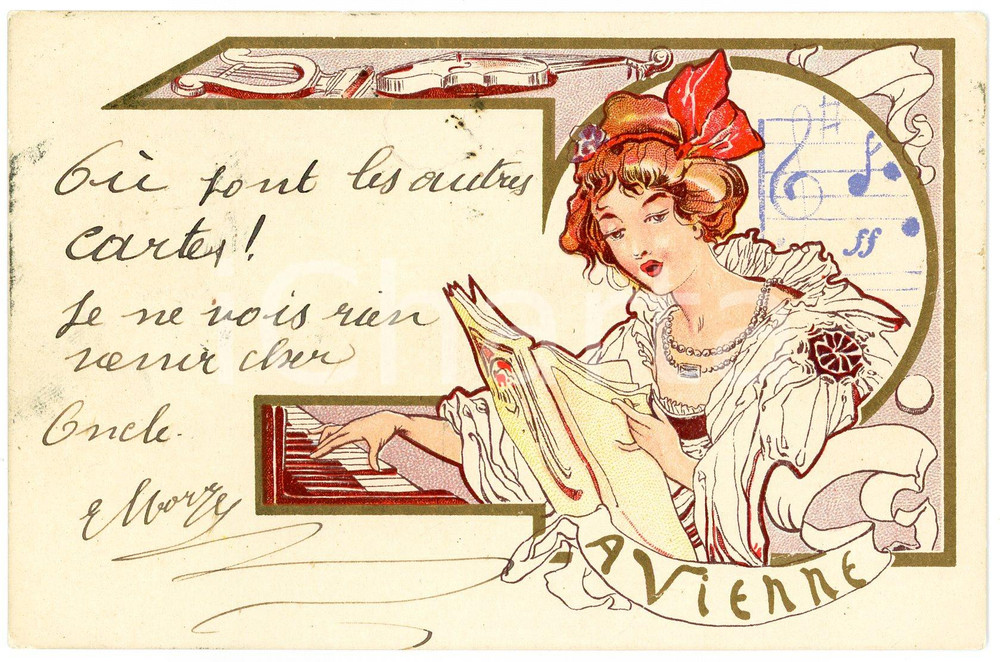 Où sont les autres
cartes!
Je ne vois rien
venir cher
Oncle.
ff
A VIENNE